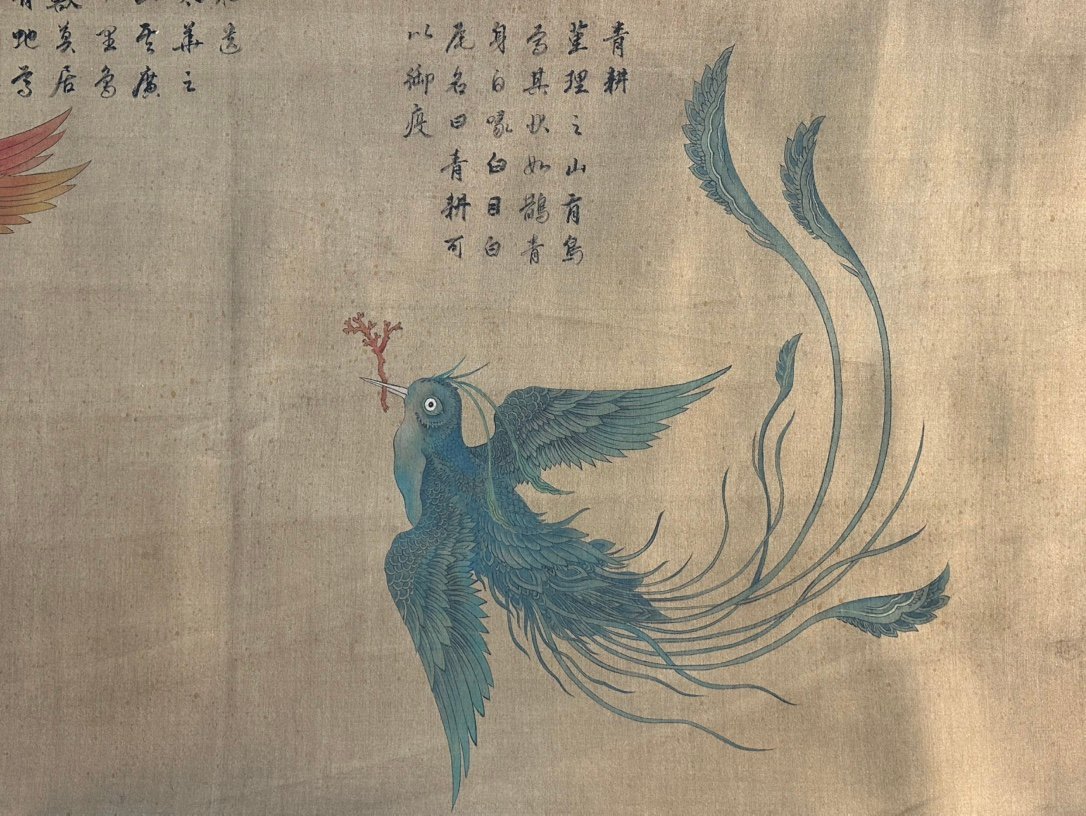 青耕
堇理之山有鳥
焉其状如鵲青
身白喙白目白
尾名曰青耕可
以御疫
遺
華之
山其廣
里鳥
獸莫居
有蛇焉